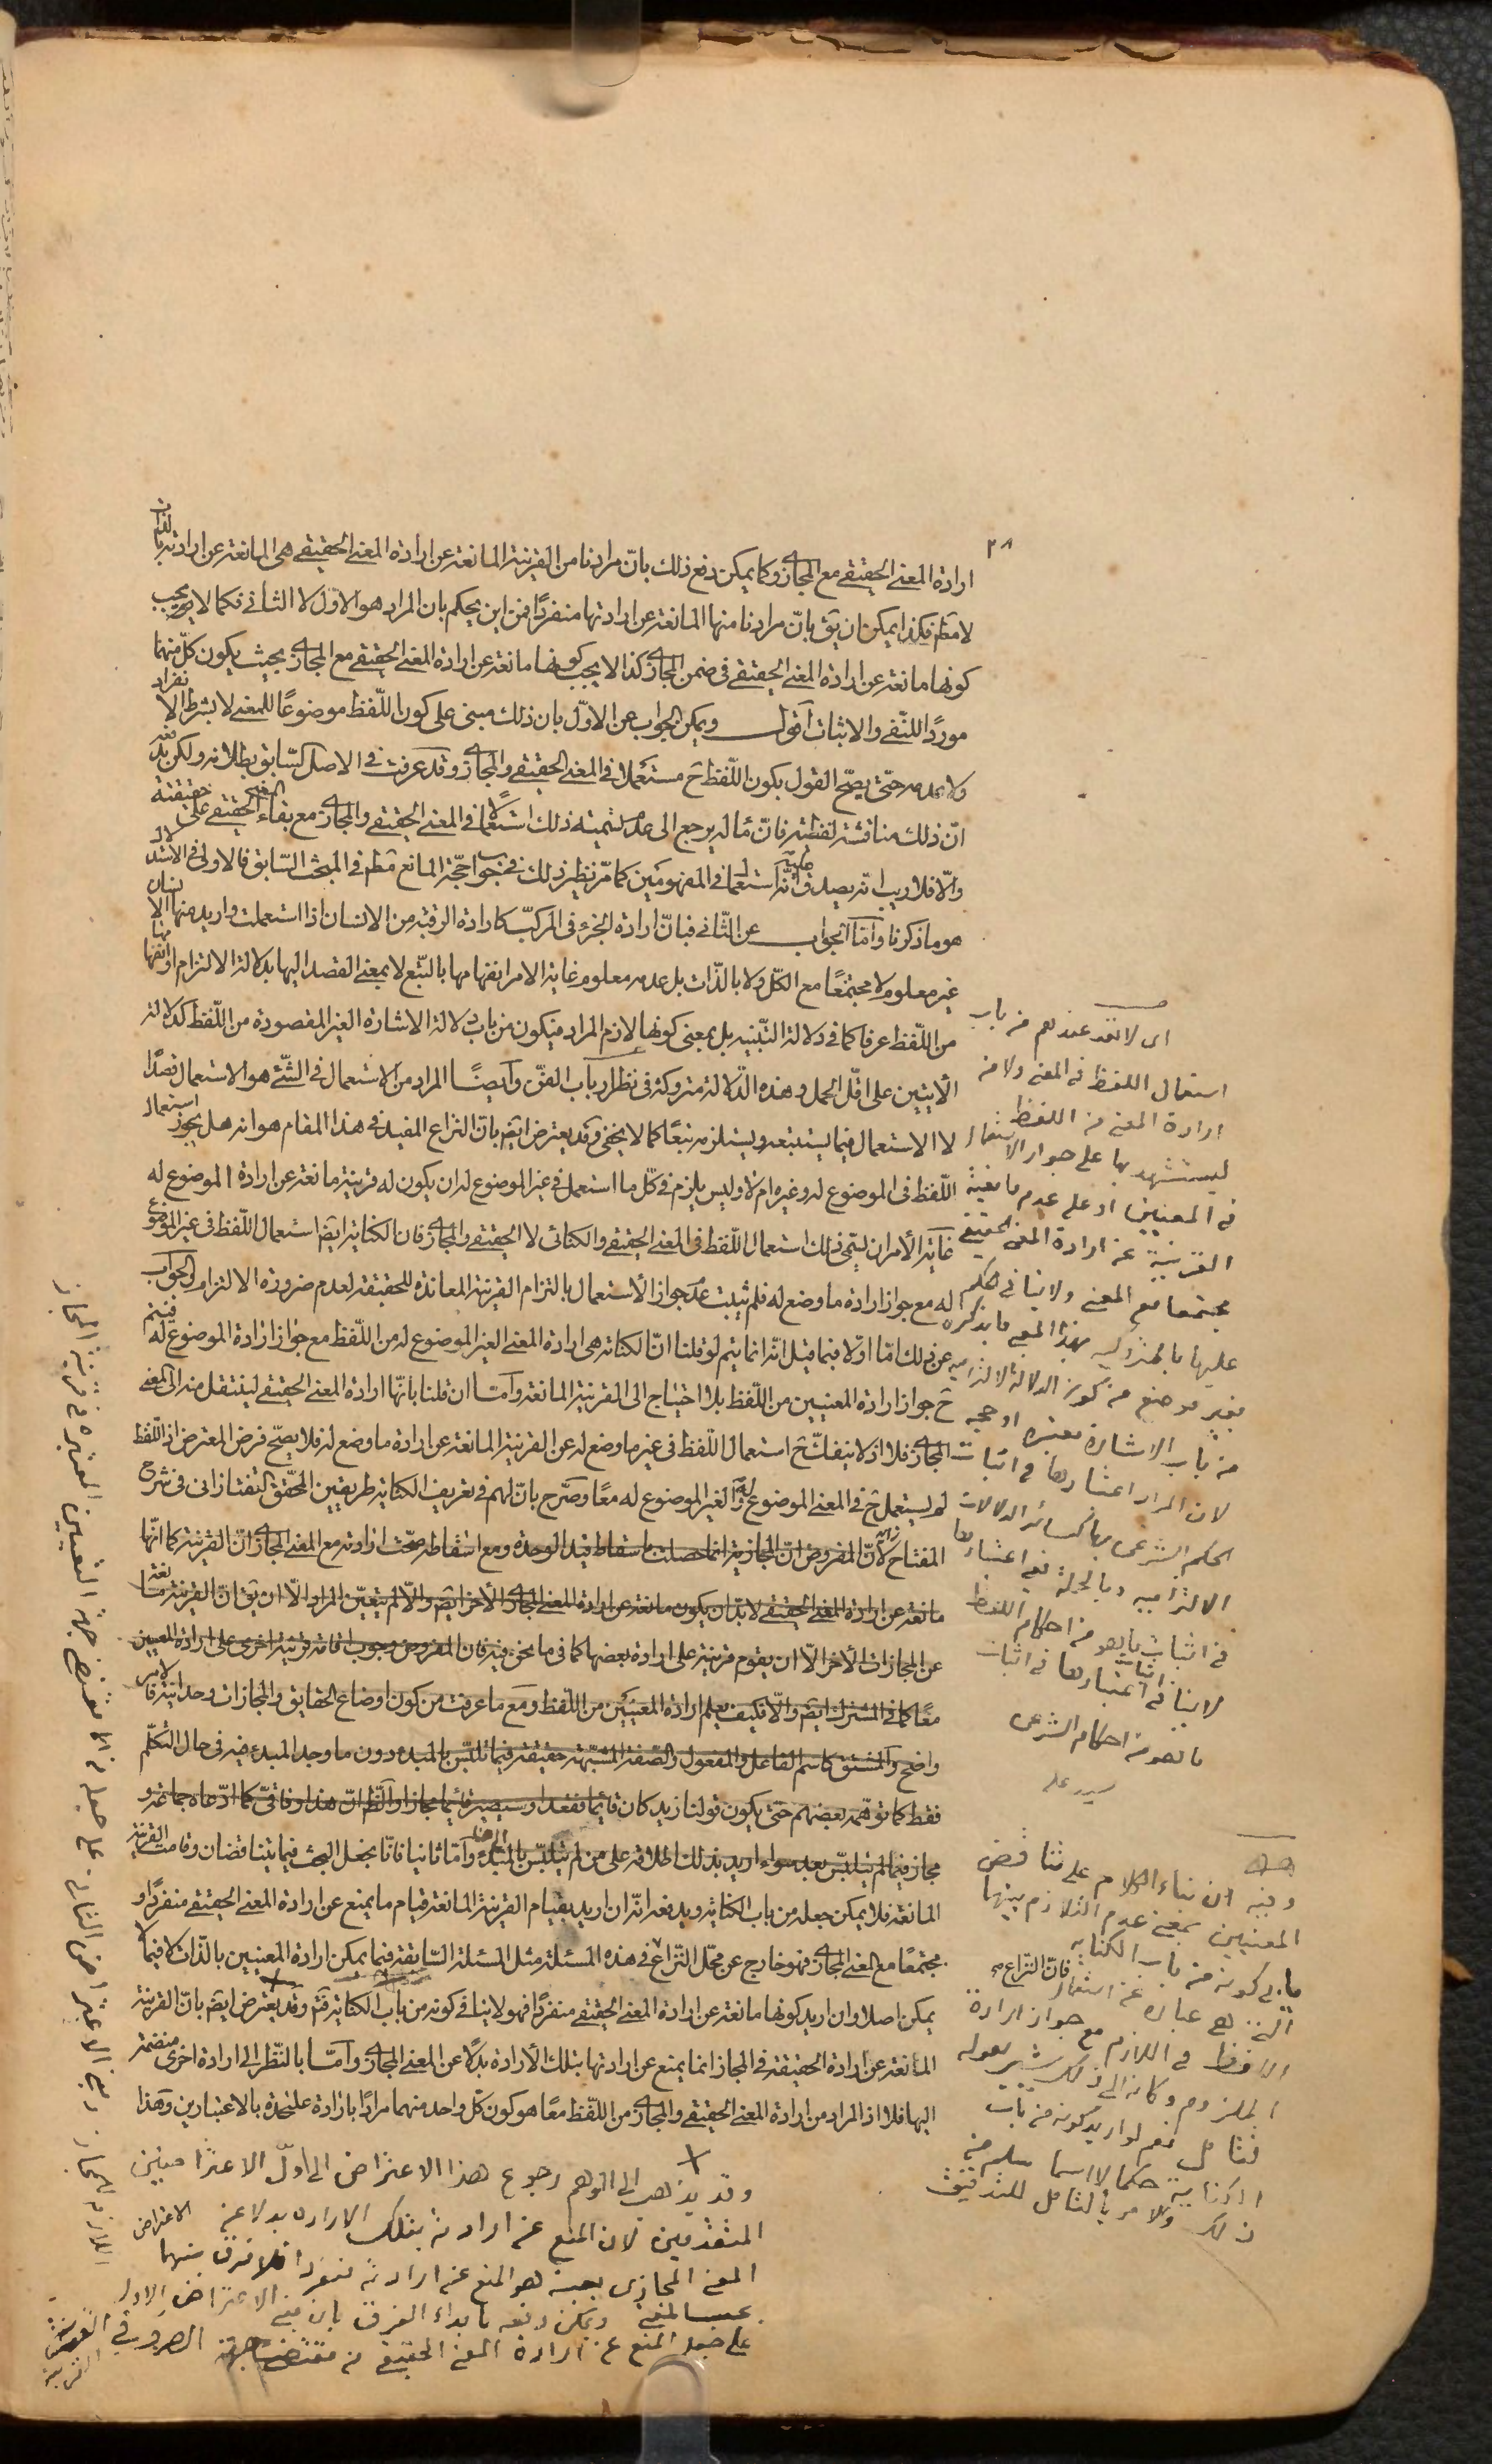 ٢٨
ارادة المعنى الحقيقى مع المجازى وكما يمكن دفع ذلك بانّ مرادنا من القرينة المانعة عن ارادة المعنى الحقيقى هى المانعة عن ارادته بالذات
لا مطم فكذا يمكن ان يق بانّ مرادنا منها المانعة عن ارادتها منفردًا فمن اين يحكم بان المراد هو الاوّل لا الثانى فكما لا يجب
كونها مانعة عن ارادة المعنى الحقيقى فى ضمن المجازى كذا لا يجب كونها مانعة عن ارادة المعنى الحقيقى مع المجازى بحيث يكون كلّ منهما
موردًا للنّفى والاثبات اقول ويمكن الجواب عن الاوّل بان ذلك مبنى على كون اللّفظ موضوعًا للمعنى لا بشرط الانفراد
ولا عدمه حتّى يصحّ القول بكون اللّفظ ح مستعملا فى المعنى الحقيقى والمجازى وقد عرفت فى الاصل السّابق بطلانه ولكن
انّ ذلك مناقشة لفظيّة فانّ مآله يرجع الى عدم تسمية ذلك استعمالًا فى المعنى الحقيقى والمجازى مع بقاء المعنى الحقيقى على حقيقته
والّا فلا ريب انّه يصدق عليه انّه استعمال فى المفهومين كما مرّ نظير ذلك فى جواب حجّة المانع مطم فى المبحث السّابق فالاولى فى الاستدلال
هو ما ذكرنا وامّا الجواب عن الثّانى فبانّ ارادة الجزء فى المركّب كارادة الرقبة من الانسان اذا استعملت واريد منها الانسان
غير معلوم لا مجتمعًا مع الكلّ ولا بالذّات بل عدمه معلوم غاية الامر انفهامها بالتّبع لا بمعنى القصد اليها بدلالة الالتزام او انفهامها
من اللّفظ عرفا كما فى دلالة التّنبيه بل بمعنى كونها لازم المراد فيكون من باب دلالة الاشارة الغير المقصودة من اللّفظ كدلالة
الآيتين على اقلّ الحمل وهذه الدّلالة متروكة فى نظر ارباب الفنّ وايضًا المراد من الاستعمال فى الشّئ هو الاستعمال قصدًا
لا الاستعمال فيما يستتبعه ويستلزمه تبعًا كما لا يخفى وقد يعترض ايضم بانّ النزاع المفيد فى هذا المقام هو انه هل يجوز استعمال
اللّفظ فى الموضوع له وغيره ام لا وليس يلزم فى كلّ ما استعمل فى غير الموضوع له ان يكون له قرينة مانعة عن ارادة الموضوع له
غاية الأمر ان يسمّى ذلك استعمال اللّفظ فى المعنى الحقيقى والكنائى لا الحقيقى والمجازى فان الكناية ايضم استعمال اللّفظ فى غير الموضوع
له مع جواز ارادة ما وضع له فلم يثبت عدم جواز الأستعمال بالتزام القرينة المعاندة للحقيقة لعدم ضرورة الالتزام والجواب
عن ذلك امّا اوّلا فبما قيل انّه انما يتم لو قلنا انّ الكناية هى ارادة المعنى الغير الموضوع له من اللّفظ مع جواز ارادة الموضوع له
ح جواز ارادة المعنيين من اللّفظ بلا احتياج الى القرينة المانعة وامّا ان قلنا بانّها ارادة المعنى الحقيقى لينتقل منه الى المعنى
المجازى فلا اذ لا ينفكّ ح استعمال اللّفظ فى غير ما وضع له عن القرينة المانعة عن ارادة ما وضع له فلا يصحّ فرض المعترض اذ اللّفظ
لم يستعمل ح فى المعنى الموضوع له والغير الموضوع له معًا وصرّح بانّ لهم فى تعريف الكناية طريقين المحقّق التفتازانى فى شرح
المفتاح لأنّ المفروض انّ المجازية انما حصلت باسقاط قيد الوحدة ومع اسقاطه صحّت ارادته مع المعنى المجازى انّ القرينة كما انّها
مانعة عن ارادة المعنى الحقيقى لا بدّ ان يكون مانعة عن ارادة المعنى المجازى الأخر ايضم والّا لم يتعيّن المراد الّا ان يق انّ القرينة مانعة
عن المجازات الأخر الّا ان يقوم قرينة على ارادة بعضها كما فى ما نحن فيه فان المفروض وجوب اقامة قرينة اخرى على ارادة المعنيين
معًا كما فى المشترك ايضم والّا فكيف يعلم ارادة المعنيين من اللّفظ ومع ما عرفت من كون اوضاع الحقايق والمجازات وحدانية فالأمر
واضح والمشتق كاسم الفاعل والمفعول والصّفة المشبّهة حقيقة فيما تلبّس بالمبدء دون ما وجد المبدء فيه فى حال التكلّم
فقط كما توهّمه بعضهم حتّى يكون قولنا زيد كان قائما فقعد او سيصير قائما مجازا والظّ انّ هذا وفاقىّ كما ادّعاه جماعة و
مجاز فيما لم يتلبّس بعد سواء اريد بذلك اطلاقه على من لم يتلبّس بالمبدء وامّا ثانيا فانّا نجعل البحث فيما يتناقضان وقامت القرينة
المانعة فلا يمكن جعله من باب الكناية ويدفعه انّه ان اريد بقيام القرينة المانعة قيام ما يمنع عن ارادة المعنى الحقيقى منفردًا و
مجتمعًا مع المعنى المجازى فهو خارج عن محلّ النّزاع فى هذه المسئلة مثل المسئلة السّابقة فيما يمكن ارادة المعنيين بالذّات لا فيما لا
يمكن اصلا وان اريد كونها مانعة عن ارادة المعنى الحقيقى منفردًا فهو لا ينافى كونه من باب الكناية وقد يعترض ايضم بانّ القرينة
المانعة عن ارادة الحقيقة فى المجاز انما يمنع عن ارادتها بتلك الأرادة بدلًا عن المعنى المجازى وامّا بالنّظر الى ارادة اخرى منضمّة
اليها فلا اذ المراد من ارادة المعنى الحقيقى والمجازى من اللّفظ معًا هو كون كلّ واحد منهما مرادًا بارادة عليحدة بالاعتبارين وهذا
وقد يذهب الى الوهم رجوع هذا الاعتراض الى اوّل الاعتراضين
المتقدمين لان المنع عن ارادته بتلك الارادة بدلا عن
المعنى المجازى بعينه هو المنع عن ارادته منفردا فلا فرق بينهما
بحسب المعنى ويمكن دفعه بابداء الفرق بان مبنى الاعتراض الاول
على جعل المنع عن ارادة المعنى الحقيقى من مقتضى جهة
اى لا تعد عندهم من باب
استعمال اللفظ فى المعنى ولا من
ارادة المعنى من اللفظ
ليستشهد بها على جواز الاستعمال
فى المعنيين او على عدم مانعية
القرينة عن ارادة المعنى الحقيقى
مجتمعا مع المعنى ولا ينافى حكم
من باب الاشارة معتبرة او حجة
لان المراد اعتبارها فى اثبات
الحكم الشرعى بها كسائر الدلالات
الالتزامية وبالجملة نفى اعتبارها
فى اثبات ما يهو من احكام اللفظ
لا ينافى اعتبارها فى اثبات
ما هو من احكام الشرعى
وفيه ان بناء الكلام على تناقض
المعنيين بمعنى عدم التلازم بينهما
ما بى كونه من باب الكناية
التى هى عبارة عن استعمال
اللفظ فى اللازم مع جواز ارادة
الملزوم وكانه الى ذلك يشير بقوله
فتامل نعم لو اريد كونه من باب
الكناية حكما لا اسما سلم من
ذلك والامر بالتامل للتدقيق